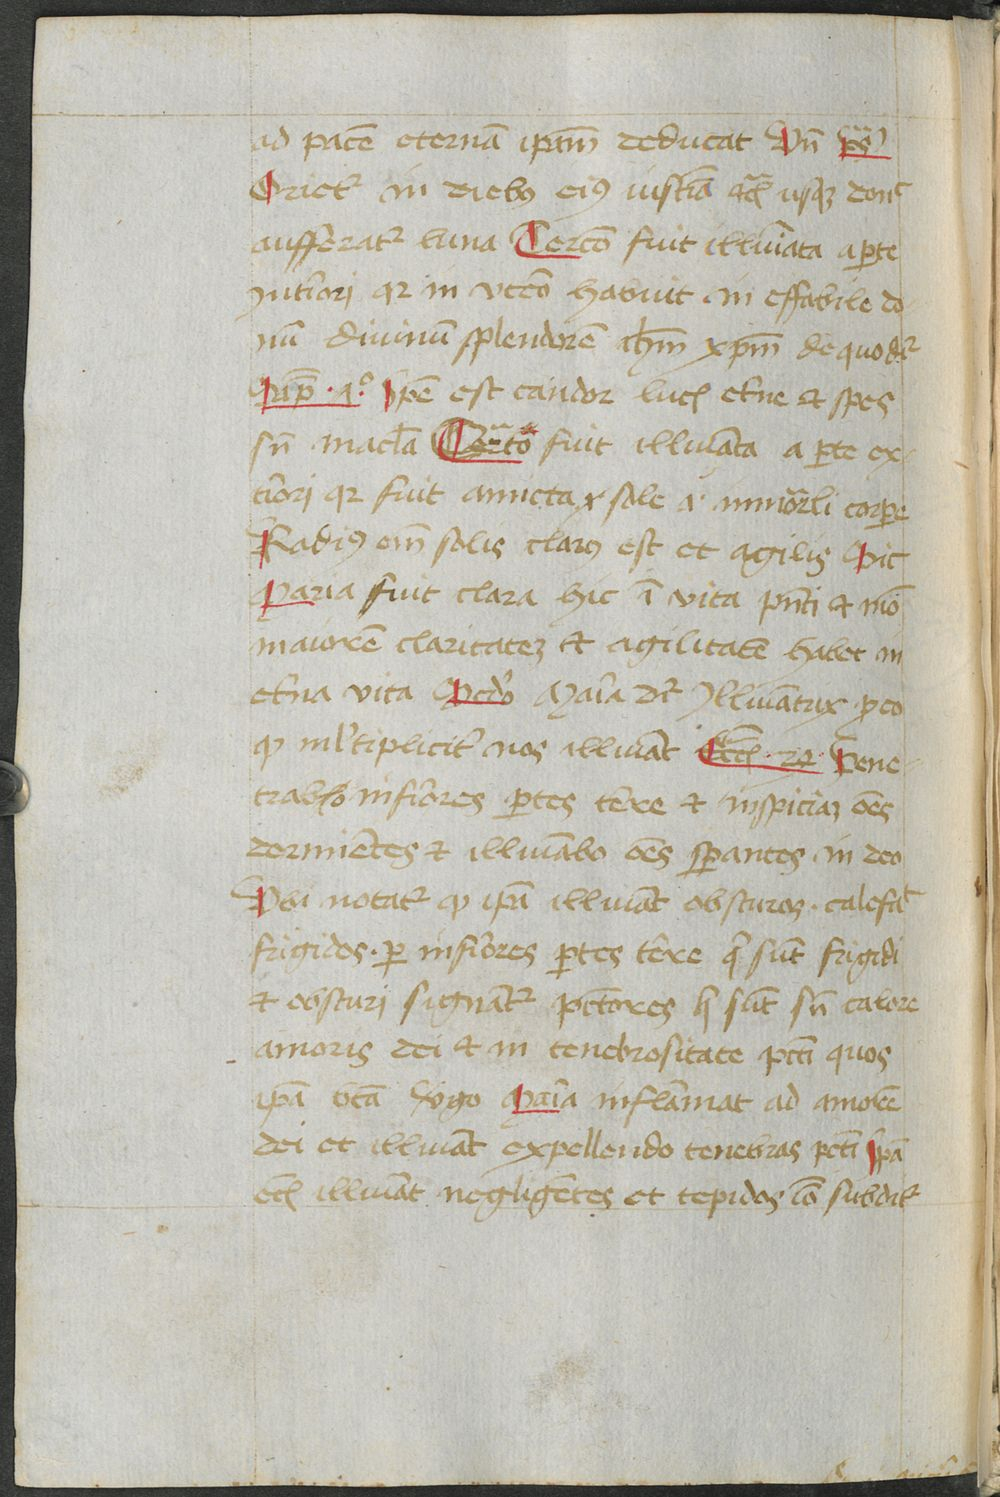 ad pacē eternā ip̄am deducat Vn̄ p̄s̄
Oriet͛ in dieb9 ei9 iusticīa et usqꝫ donc
aufferat͛ luna Tercō fuit illuīata a ꝑte
Intīori qꝛ in vtēo habuit in effabile do
nū diuinū splendorē ihm̄ xp̄m de quo d͛r
Sap̄ · 7° Ip̄e est candor luc etn̄e et spes
sn̄ macl̄a Q̄rto fuit illuīata a ꝑte ex
tīori qꝛ fuit amicta sole i. īmor̄li corꝑe
Radi9 em̄ solis clar9 est et agilis Sic
Maria fuit clara hic ī vita pn̄ti et mō
maiorē claritateꝫ et agilitatē habet in
etn̄a vita Scd̄o Maīa d͛r Illuīatrix ꝓ eo
ꝙ ml̓tiplicit͛ nos illuīat Eccī 24 Pene
trabo infīores ꝑtes terre et inspiciaꝫ oēs
dormiētes et illuīabo oēs sꝑantes in deo
Vbi notat͛ ꝙ ip̄a illuīat obscuros · calefac
frigidos · ꝑ infīores ꝑtes terre q̄ sūt frigidi
et obscuri signāt͛ pctōres q sūt sn̄ calore
amoris dei et in tenebrositate pcti quos
ip̄a btā v̓go Maīa inflāmat ad amorē
dei et illuīat expellendo tenebras pcti Ip̄a
ecī illuīat negligētes et tepidos īo subdit͛